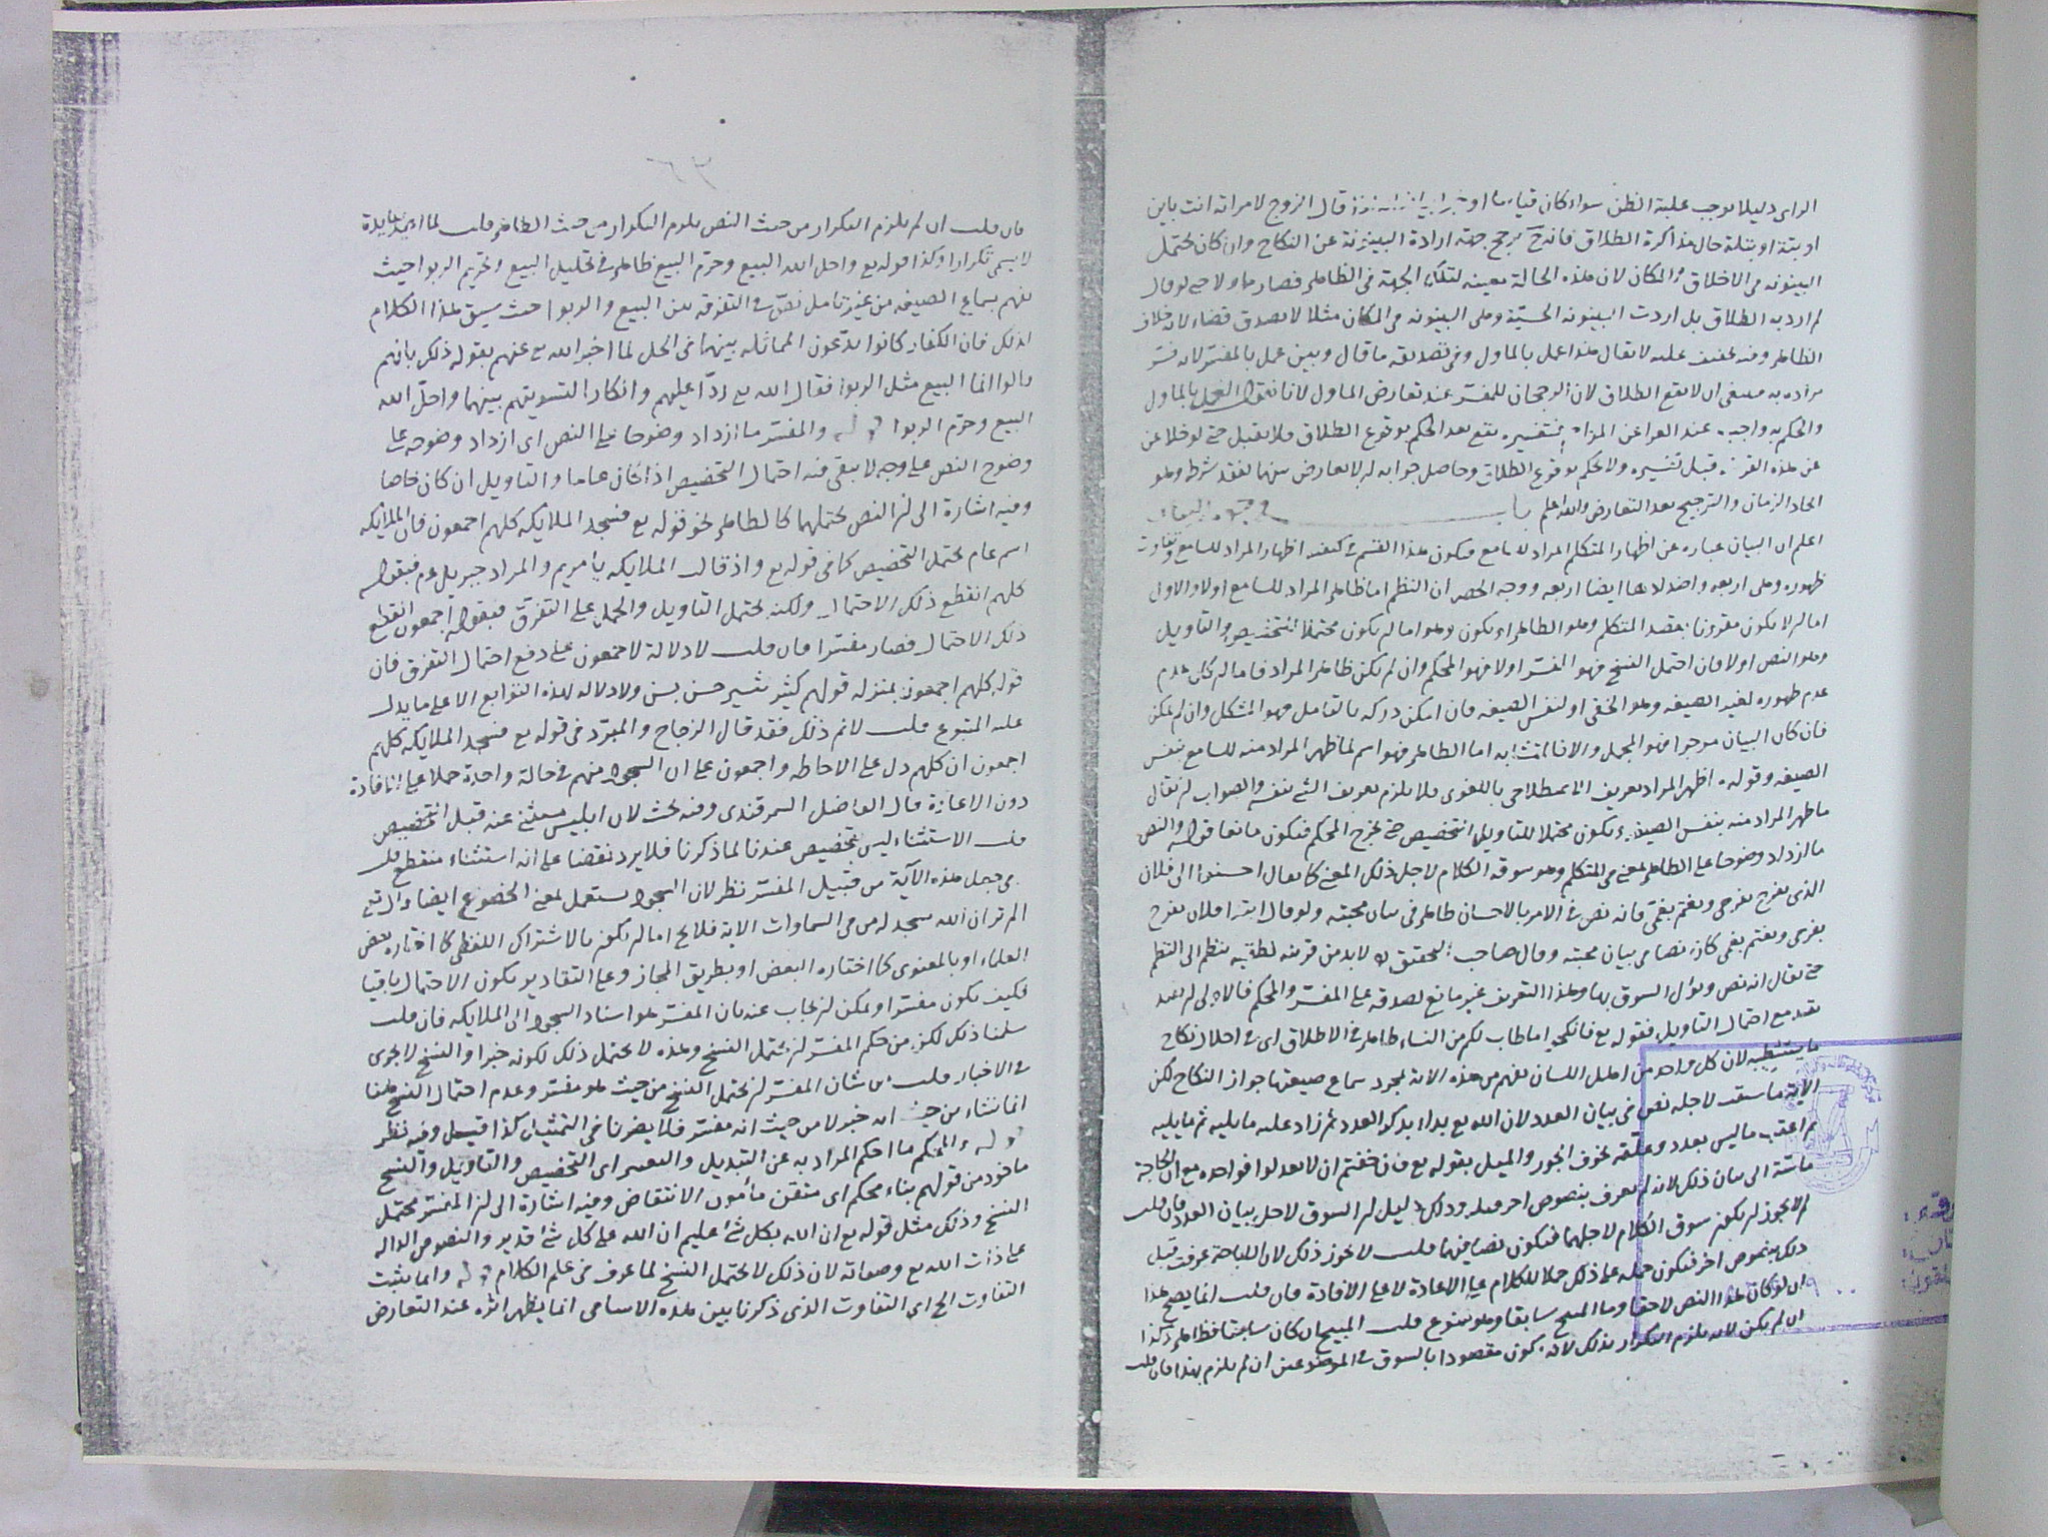 الراى دليلا يوجب غلبة الظن سواء كان قياسا او خبر قال الزوج لامراته انت باين
او بتة او بتلة حال مذاكرة الطلاق فانه ح يرجح جهة ارادة البينونة عن النكاح وان كان يحتمل
البينونه من الاخلاق والمكان لان هذه الحالة معينه لتلك الجهة فى الظاهر فصار ماولا حتى لو قال
لم ارد به الطلاق بل اردت البينونه الحسّية وهى البينونه من المكان مثلا لا يصدق قضاء لانه خلاف
الظاهر وفيه تخفيف عليه لا يقال هذا عمل بالماول وفى تصديقه ما قال وبين عمل بالمفسّر لانه فسّر
مراده به فينبغى ان لا يقع الطلاق لان الرجحان للمفسّر عند تعارض الماول لانا نقول العمل بالماول
والحكم به واجب عند العراعن المراد بتفسيره يقع بعد الحكم بوقوع الطلاق فلا يقبل حتى لو خلا عن
عن هذه القرينة قبل تفسيره ولا يحكم بوقوع الطلاق وحاصل جوابه انه لا تعارض بينهما لفقد شرطه وهو
اتحاد الزمان والترجيح بعد التعارض والله اعلم باب فى وجوه البيان
اعلم ان البيان عباره عن اظهار المتكلم المراد للسامع فيكون هذا القسم فى كيفية اظهار المراد للسامع وتفاوت
ظهوره وهى اربعه واضدادها ايضا اربعه ووجه الحصر ان النظم اما ظاهر المراد للسامع اولا والاول
اما ان لا يكون مقرونا بقصد المتكلم وهو الظاهر او يكون وهو اما ان يكون محتملا للتخصيص والتاويل
وهو النص اولا فان احتمل النسخ فهو المفسّر اولا فهو المحكم وان لم يكن ظاهر المراد فاما ان كان عدم
عدم ظهوره لغير الصيغه وهو الخفى او لنفس الصيغه فان امكن دركه بالتامل فهو المشكل وان لم يمكن
فان كان البيان مرجوا فهو المجمل والا فالمتشابه اما الظاهر فهو اسم لما ظهر المراد منه للسامع بنفس
الصيغه وقوله اظهر المراد تعريف الاصطلاحى باللغوى فلا يلزم تعريف الشئ بنفسه والصواب ان يقال
ما ظهر المراد منه بنفس الصيغة ويكون محتملا للتاويل والتخصيص حتى يخرج المحكم فيكون مانعا قوله والنص
ما ازداد وضوحا على الظاهر لمعنى من المتكلم وهو سوقه الكلام لاجل ذلك المعنى كما يقال احسنوا الى فلان
الذى يفرح بفرحى ويغتم بغمى فانه نص فى الامر بالاحسان ظاهر فى بيان محبته ولو قال ابتداء فلان يفرح
بفرحى ويغتم بغمى كان نصا فى بيان محبته وقال صاحب التحقيق لا بد من قرينه نطقيه ينظم الى النظم
حتى يقال انه نص ويؤل السوق بها وهذا التعريف غير مانع لصدقه على المفسّر والمحكم فالاولى ان يقيد
بقيد مع احتمال التاويل فقوله تع فانكحوا ما طاب لكم من النساء ظاهر فى الاطلاق اى فى احلال نكاح
ما يستطيبه لان كل واحد من اهل اللسان يفهم من هذه الاية بمجرد سماع صيغتها جواز النكاح لكن
الاية ما سيقت لاجله نص فى بيان العدد لان الله تع بداء بذكر العدد ثم زاد عليه ما يليه ثم ما يليه
ثم اعقب ما ليس بعدد وعلقه بخوف الجور والميل بقوله تع فان خفتم ان لا تعدلوا فواحده مع ان الحاجة
ماسّة الى بيان ذلك لانه لم يعرف بنصوص اخر قبله وذلك دليل ان السوق لاجل بيان العدد فان قلت
لم لا يجوز ان يكون سوق الكلام لاجلهما فيكون نصا فيهما قلت لا يجوز ذلك لان الاباحة عرفت قبل
ذلك بنصوص اخر فيكون حمله على ذلك حملا للكلام على الاعادة لا على الافادة فان قلت انما يصح هذا
ان لو كان هذا النص لاحقا وما المبيح سابقا وهو ممنوع قلت المبيح ان كان سابقا فظاهر وكذا
ان لم يكن لانه يلزم التكرار بذلك لانه يكون مقصودا بالسوق فى الموضعين ان لم يلزم بهذا فان قلت
فان قلت ان لم يلزم التكرار من حيث النص يلزم التكرار من حيث الظاهر قلت لما فائدة
لا يسمى تكرارا وكذا قوله تع واحل الله البيع وحرم البيع ظاهر فى تحليل البيع وتحريم الربوا حيث
يفهم بسماع الصيغه من غير تامل نصّ فى التفرقه بين البيع والربوا حيث سيق هذا الكلام
لذلك فان الكفار كانوا يدّعون المماثله بينهما فى الحل لما اخبر الله تع عنهم بقوله ذلك بانهم
قالوا انما البيع مثل الربوا فقال الله تع ردّا عليهم وانكارا لتسويتهم بينهما واحلّ الله
البيع وحرم الربوا قوله والمفسّر ما ازداد وضوحا على النص اى ازداد وضوحه على
وضوح النص على وجه لا يبقى فيه احتمال التخصيص اذا كان عاما والتاويل ان كان خاصا
وفيه اشارة الى ان النص يحتملهما كالظاهر نحو قوله تع فسجد الملايكه كلهم اجمعون فان الملايكه
اسم عام يحتمل التخصيص كما فى قوله تع واذ قالت الملايكه يا مريم والمراد جبريل عم فبقوله
كلهم انقطع ذلك الاحتمال ولكنه يحتمل التاويل والحمل على التفرّق فبقوله اجمعون انقطع
ذلك الاحتمال فصار مفسّرا فان قلت لا دلالة لاجمعون على دفع احتمال التفرق فان
قوله كلهم اجمعون بمنزله قولهم كثير بثير حسن بسن ولا دلاله لهذه التوابع الا على ما يدل
عليه المتبوع قلت لا نم ذلك فقد قال الزجاج والمبرّد فى قوله تع فسجد الملايكه كلهم
اجمعون ان كلهم دل على الاحاطه واجمعون على ان السجود منهم فى حالة واحدة حملا على الافادة
دون الاعادة قال الفاضل السمرقندى وفيه بحث لان ابليس مستثنى عنه قبل التخصيص
قلت الاستثناء ليس بتخصيص عندنا لما ذكرنا فلا يرد نقضا على انه استثناء منقطع قلت
فى جعل هذه الآية من قبيل المفسّر نظر لان السجود يستعمل لمعنى الخضوع ايضا قال تع
الم تر ان الله يسجد له من فى السماوات الاية فلا يخ اما ان يكون بالاشتراك اللفظى كما اختاره بعض
العلماء او بالمعنوى كما اختاره البعض او بطريق المجاز وعلى التقادير يكون الاحتمال باقيا
فكيف يكون مفسّرا ويمكن ان يجاب عنه بان المفسّر هو اسناد السجود الى الملايكه فان قلت
سلمنا ذلك لكن من حكم المفسّر ان يحتمل النسخ وهذه لا يحتمل ذلك لكونه خبرا والنسخ لا يجرى
فى الاخبار قلت من شان المفسّر ان يحتمل النسخ من حيث هو مفسّر وعدم احتمال النسخ هنا
انما نشاء من حيث انه خبر لا من حيث انه مفسّر فلا يضرنا فى التمثيل كذا قيل وفيه نظر
قوله والمحكم ما احكم المراد به عن التبديل والتغيير اى التخصيص والتاويل والنسخ
ماخوذ من قولهم بناء محكم اى متقن مأمون الانتقاض وفيه اشارة الى ان المفسّر يحتمل
النسخ وذلك مثل قوله تع ان الله بكل شئ عليم ان الله على كل شئ قدير والنصوص الداله
على ذات الله تع وصفاته لان ذلك لا يحتمل النسخ لما عرف فى علم الكلام قوله وانما يثبت
التفاوت الخ اى التفاوت الذى ذكرنا بين هذه الاسامى انما يظهر اثره عند التعارض